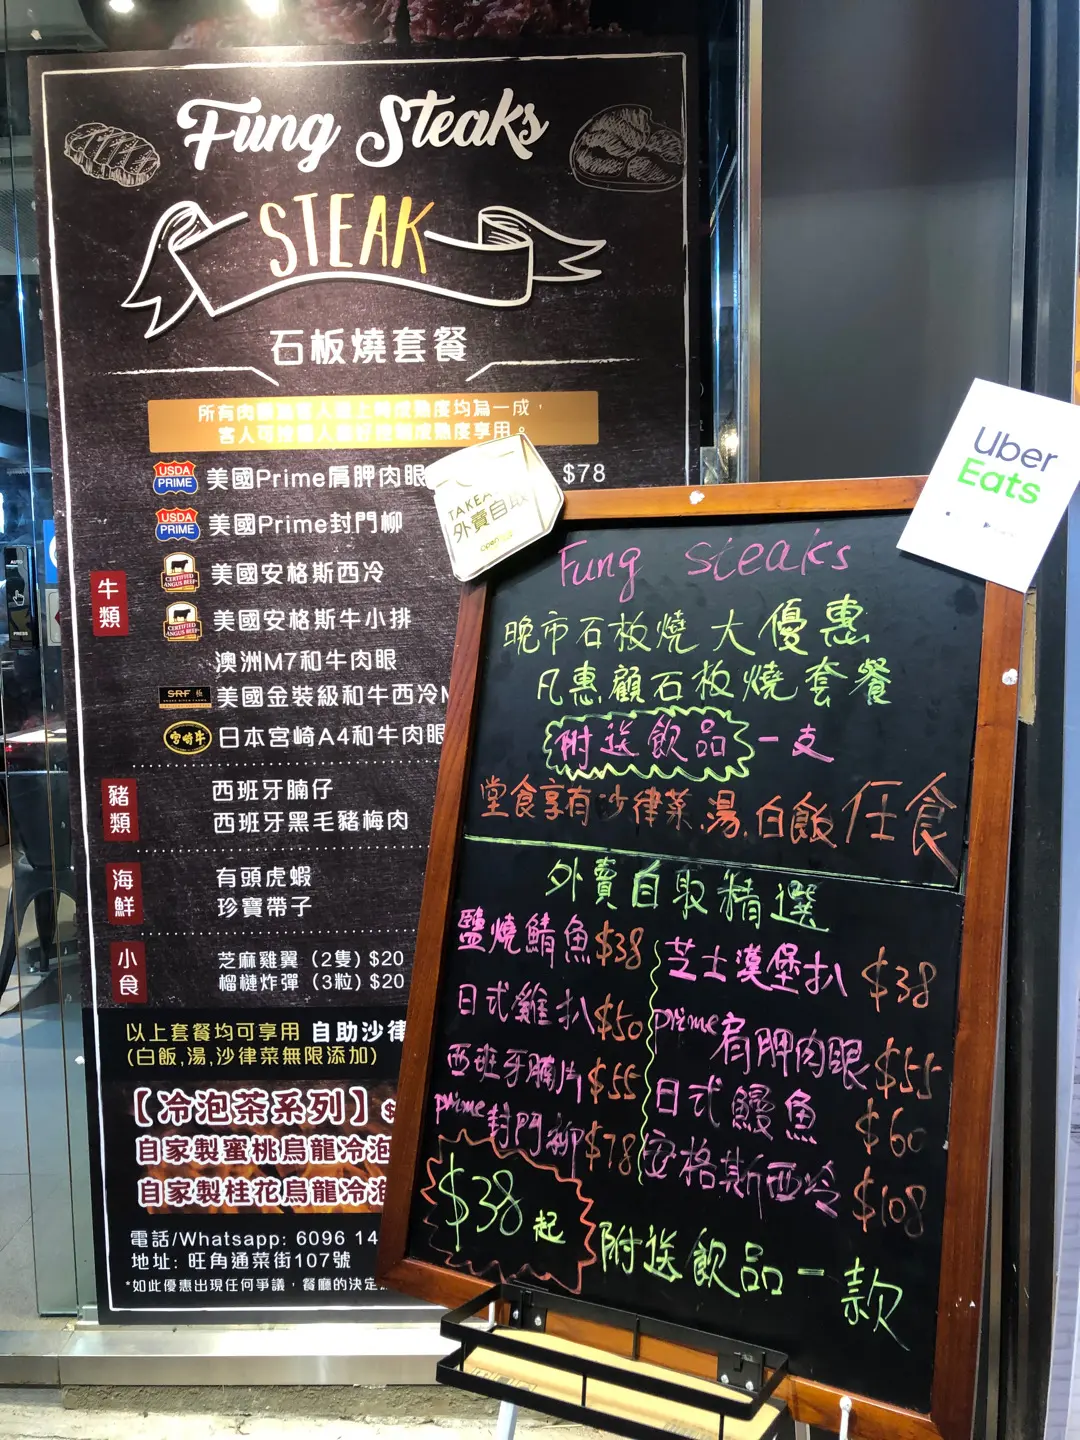 Fung Steaks
STEAK
石板燒套餐
所有肉類為客人送上時成熟度均為一成，
客人可按個人喜好控制成熟度享用。
牛類
USDA PRIME 美國Prime肩胛肉眼 $78
USDA PRIME 美國Prime封門柳
CERTIFIED ANGUS BEEF 美國安格斯西冷
CERTIFIED ANGUS BEEF 美國安格斯牛小排
澳洲M7和牛肉眼
SRF 極 美國金裝級和牛西冷
宮崎牛 日本宮崎A4和牛肉眼
豬類
西班牙腩仔
西班牙黑毛豬梅肉
海鮮
有頭虎蝦
珍寶帶子
小食
芝麻雞翼 (2隻) $20
榴槤炸彈 (3粒) $20
以上套餐均可享用 自助沙律
(白飯,湯,沙律菜無限添加)
【冷泡茶系列】
自家製蜜桃烏龍冷泡
自家製桂花烏龍冷泡
電話/Whatsapp: 6096 14
地址: 旺角通菜街107號
*如此優惠出現任何爭議，餐廳的決定
外賣自取
open
Uber
Eats
Fung steaks
晚市石板燒大優惠
凡惠顧石板燒套餐
附送飲品一支
堂食享有沙律菜.湯.白飯任食
外賣自取精選
鹽燒鯖魚$38
日式雞扒$50
西班牙腩片$55
prime封門柳$78
芝士漢堡扒$38
prime肩胛肉眼$55
日式鰻魚$60
安格斯西冷$108
$38起
附送飲品一款